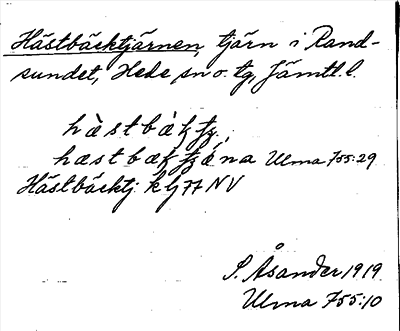 Hästbäcktjärnen, tjärn i Rand-
sundet, Hede sn o. tg, Jämtl. l.
hàstbàk̹t̹
hæstbækt̹ǽna Ulma 755:29
Hästbäcktj. k bl 77 NV
S. Åsander 1919
Ulma 755:10